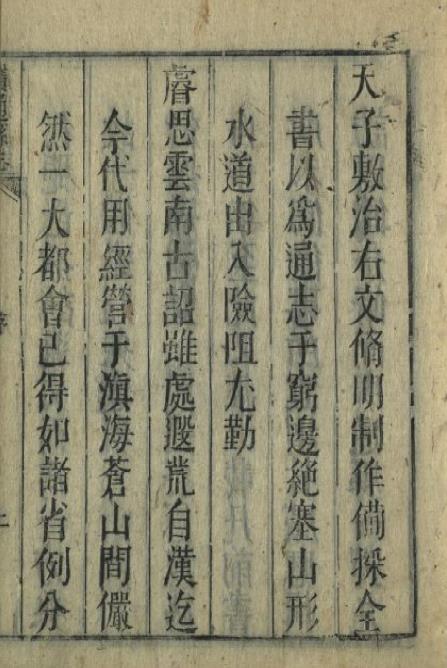 天子敷治右文脩明制作備採全
書以爲通志于窮邊絕塞山形
水道出入險阻尢勤
睿思雲南古詔雖處遐荒自漢迄
今代用經營于滇海蒼山間儼
然一大都會已得如諸省例分